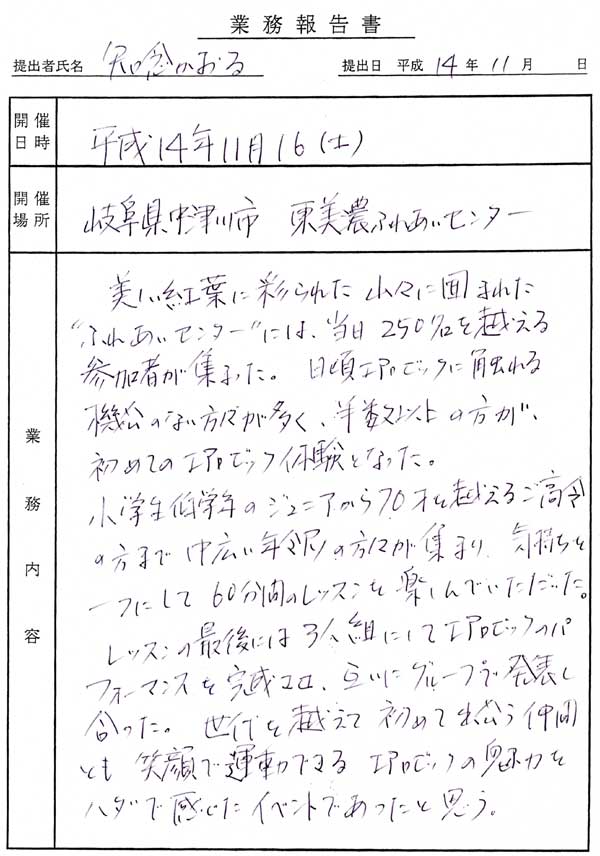 業務報告書
提出者氏名 知念かおる 提出日 平成 14年 11月 日
開催日時 平成14年11月16(土)
開催場所 岐阜県中津川市 東美濃ふれあいセンター
業務内容
美しい紅葉に彩られた山々に囲まれた
"ふれあいセンター"には、当日250名を越える
参加者が集まった。日頃エアロビックに触れる
機会のない方々が多く、半数以上の方が、
初めてのエアロビック体験となった。
小学生低学年のジュニアから70才を越えるご高令
の方まで巾広い年令層の方々が集まり、気持ちを
一つにして60分間のレッスンを楽しんでいただいた。
レッスンの最後には3人組にしてエアロビックのパ
フォーマンスを完成させ、互いにグループで発表し
合った。世代を越えて初めて出会う仲間
とも笑顔で運動できるエアロビックの魅力を
ハダで感じたイベントであったと思う。